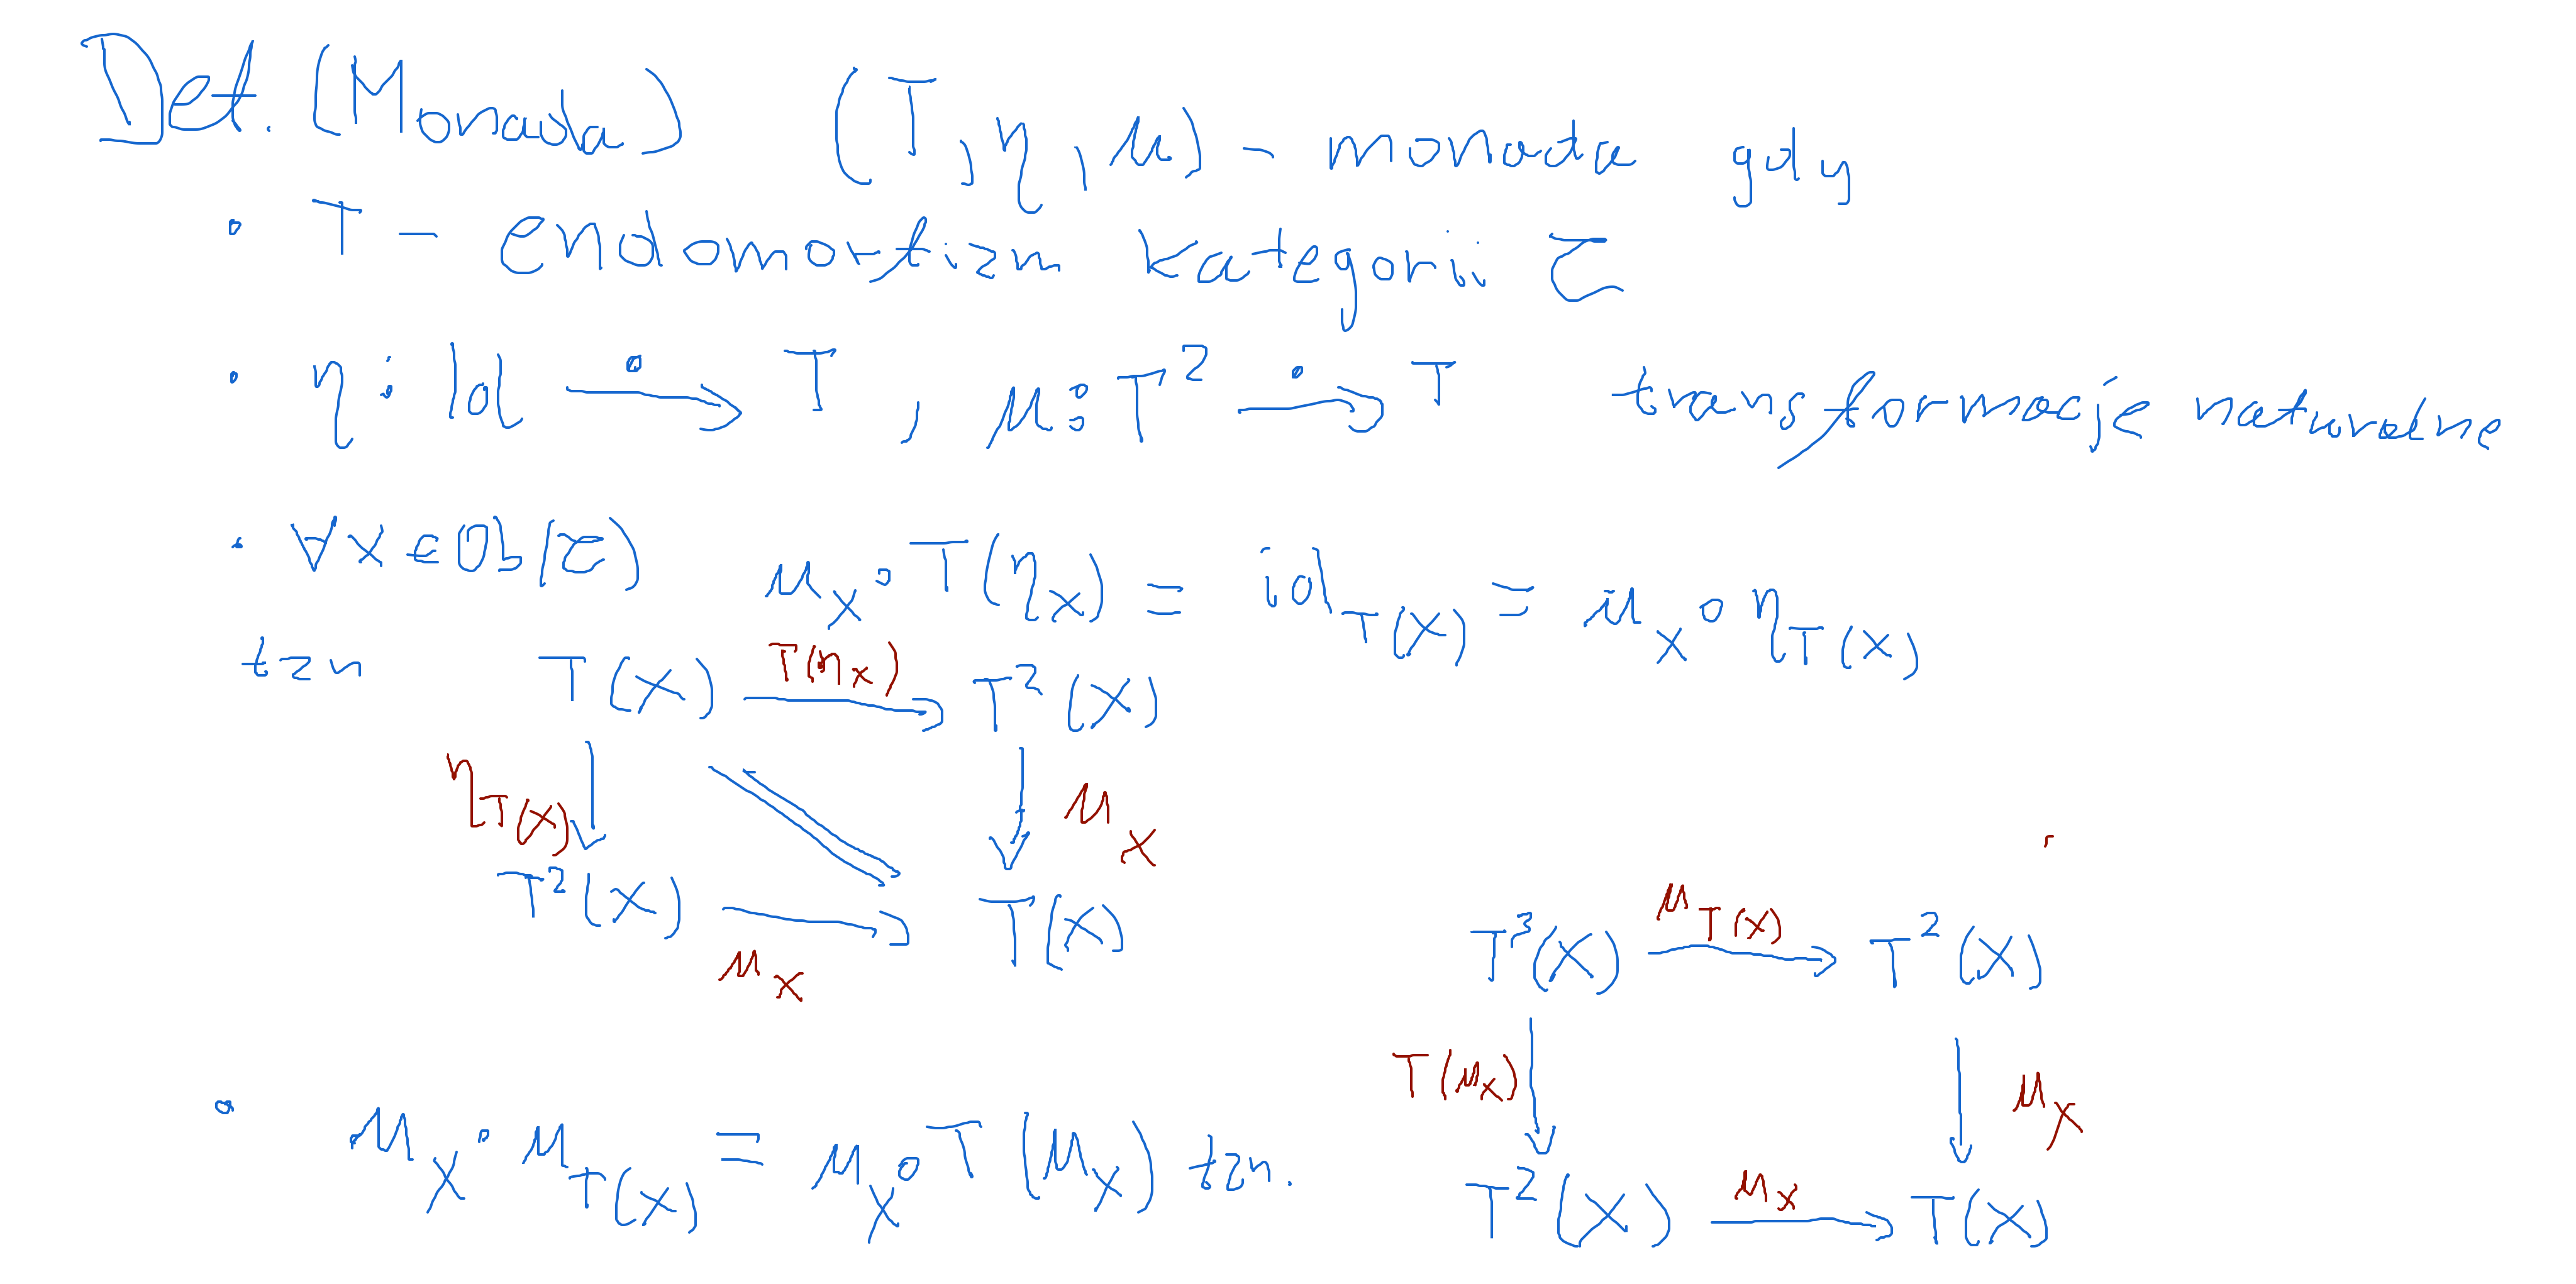 Def. (Monada) (T, η, μ) - monada gdy
• T - endomorfizm kategorii τ
• η : Id → T, μ : T² → T transformacje naturalne
• ∀ X ∈ Ob(τ) μ_X ∘ T(η_X) = id_T(X) = μ_X ∘ η_T(X)
tzn T(X) T(η_X) T²(X)
η_T(X) μ_X
T²(X) μ_X T(X)
T³(X) μ_T(X) T²(X)
T(μ_X) μ_X
• μ_X ∘ μ_T(X) = μ_X ∘ T(μ_X) tzn.
T²(X) μ_X T(X)